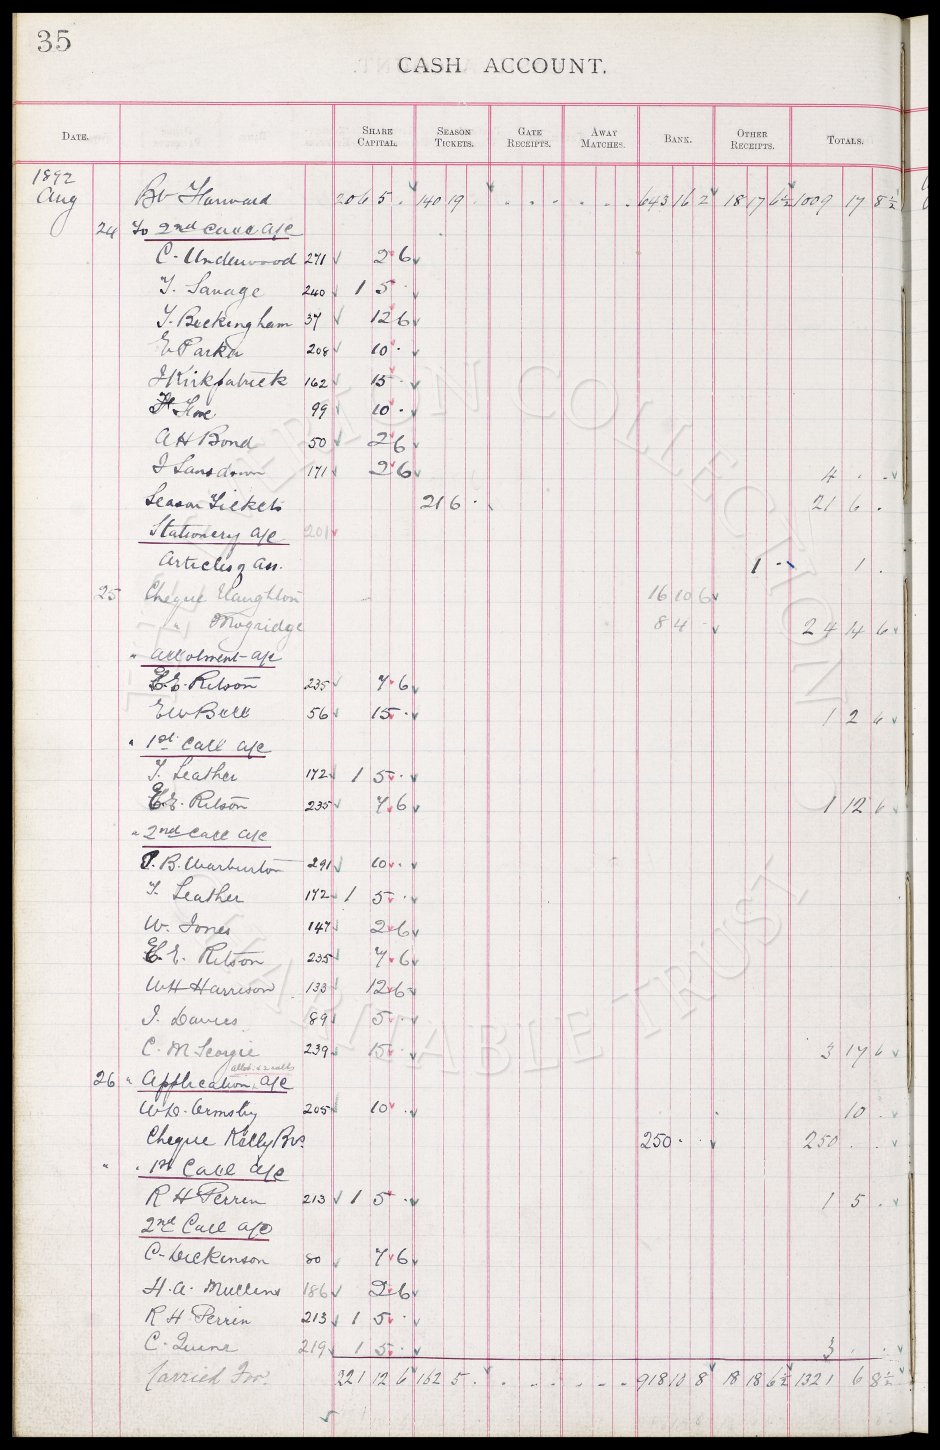 35
CASH ACCOUNT.
DATE. SHARE CAPITAL. SEASON TICKETS. GATE RECEIPTS. AWAY MATCHES. BANK. OTHER RECEIPTS. TOTALS.
1892
Aug Bt Forward 206 5 . 140 19 . . . . . . . 643 16 2 18 17 6½ 1009 17 8½
24 To 2nd Call a/c
C. Underwood 271 2 6
T. Savage 240 1 5 .
T. Buckingham 37 12 6
E Parker 208 10 .
J Kirkpatrick 162 15 .
Howe 99 10 .
A H Bond 50 2 6
J Lansdown 171 2 6 4 . .
Season Tickets 21 6 . 21 6 .
Stationery a/c 201
Articles of Ass. 1 . 1 .
25 Cheque Naughton 16 10 6
" Mogridge 8 4 . 24 14 6
" Allotment a/c
E. Ritson 235 7 6
E W Bell 56 15 . 1 2 6
" 1st Call a/c
T. Leather 172 1 5 .
E. Ritson 235 7 6 1 12 6
" 2nd Call a/c
B. Warburton 291 10 .
T. Leather 172 1 5 .
W. Jones 147 2 6
E. Ritson 235 7 6
W H Harrison 133 12 6
J. Davies 89 5 .
C. M Georgie 239 15 . 3 17 6
allot. & 2 calls
26 " Application a/c
W D. Ormsby 205 10 . 10 .
Cheque Kelly Bros. 250 . . 250 . .
" " 1st Call a/c
R H Perrin 213 1 5 . 1 5 .
2nd Call a/c
C. Dickinson 80 7 6
H. A. Mullens 186 2 6
R H Perrin 213 1 5 .
C. Quine 219 1 5 . 3 . .
Carried For. 221 12 6 162 5 . . . . . . . 918 10 8 18 18 6½ 1321 6 8½
EVERTON COLLECTION
CHARITABLE TRUST